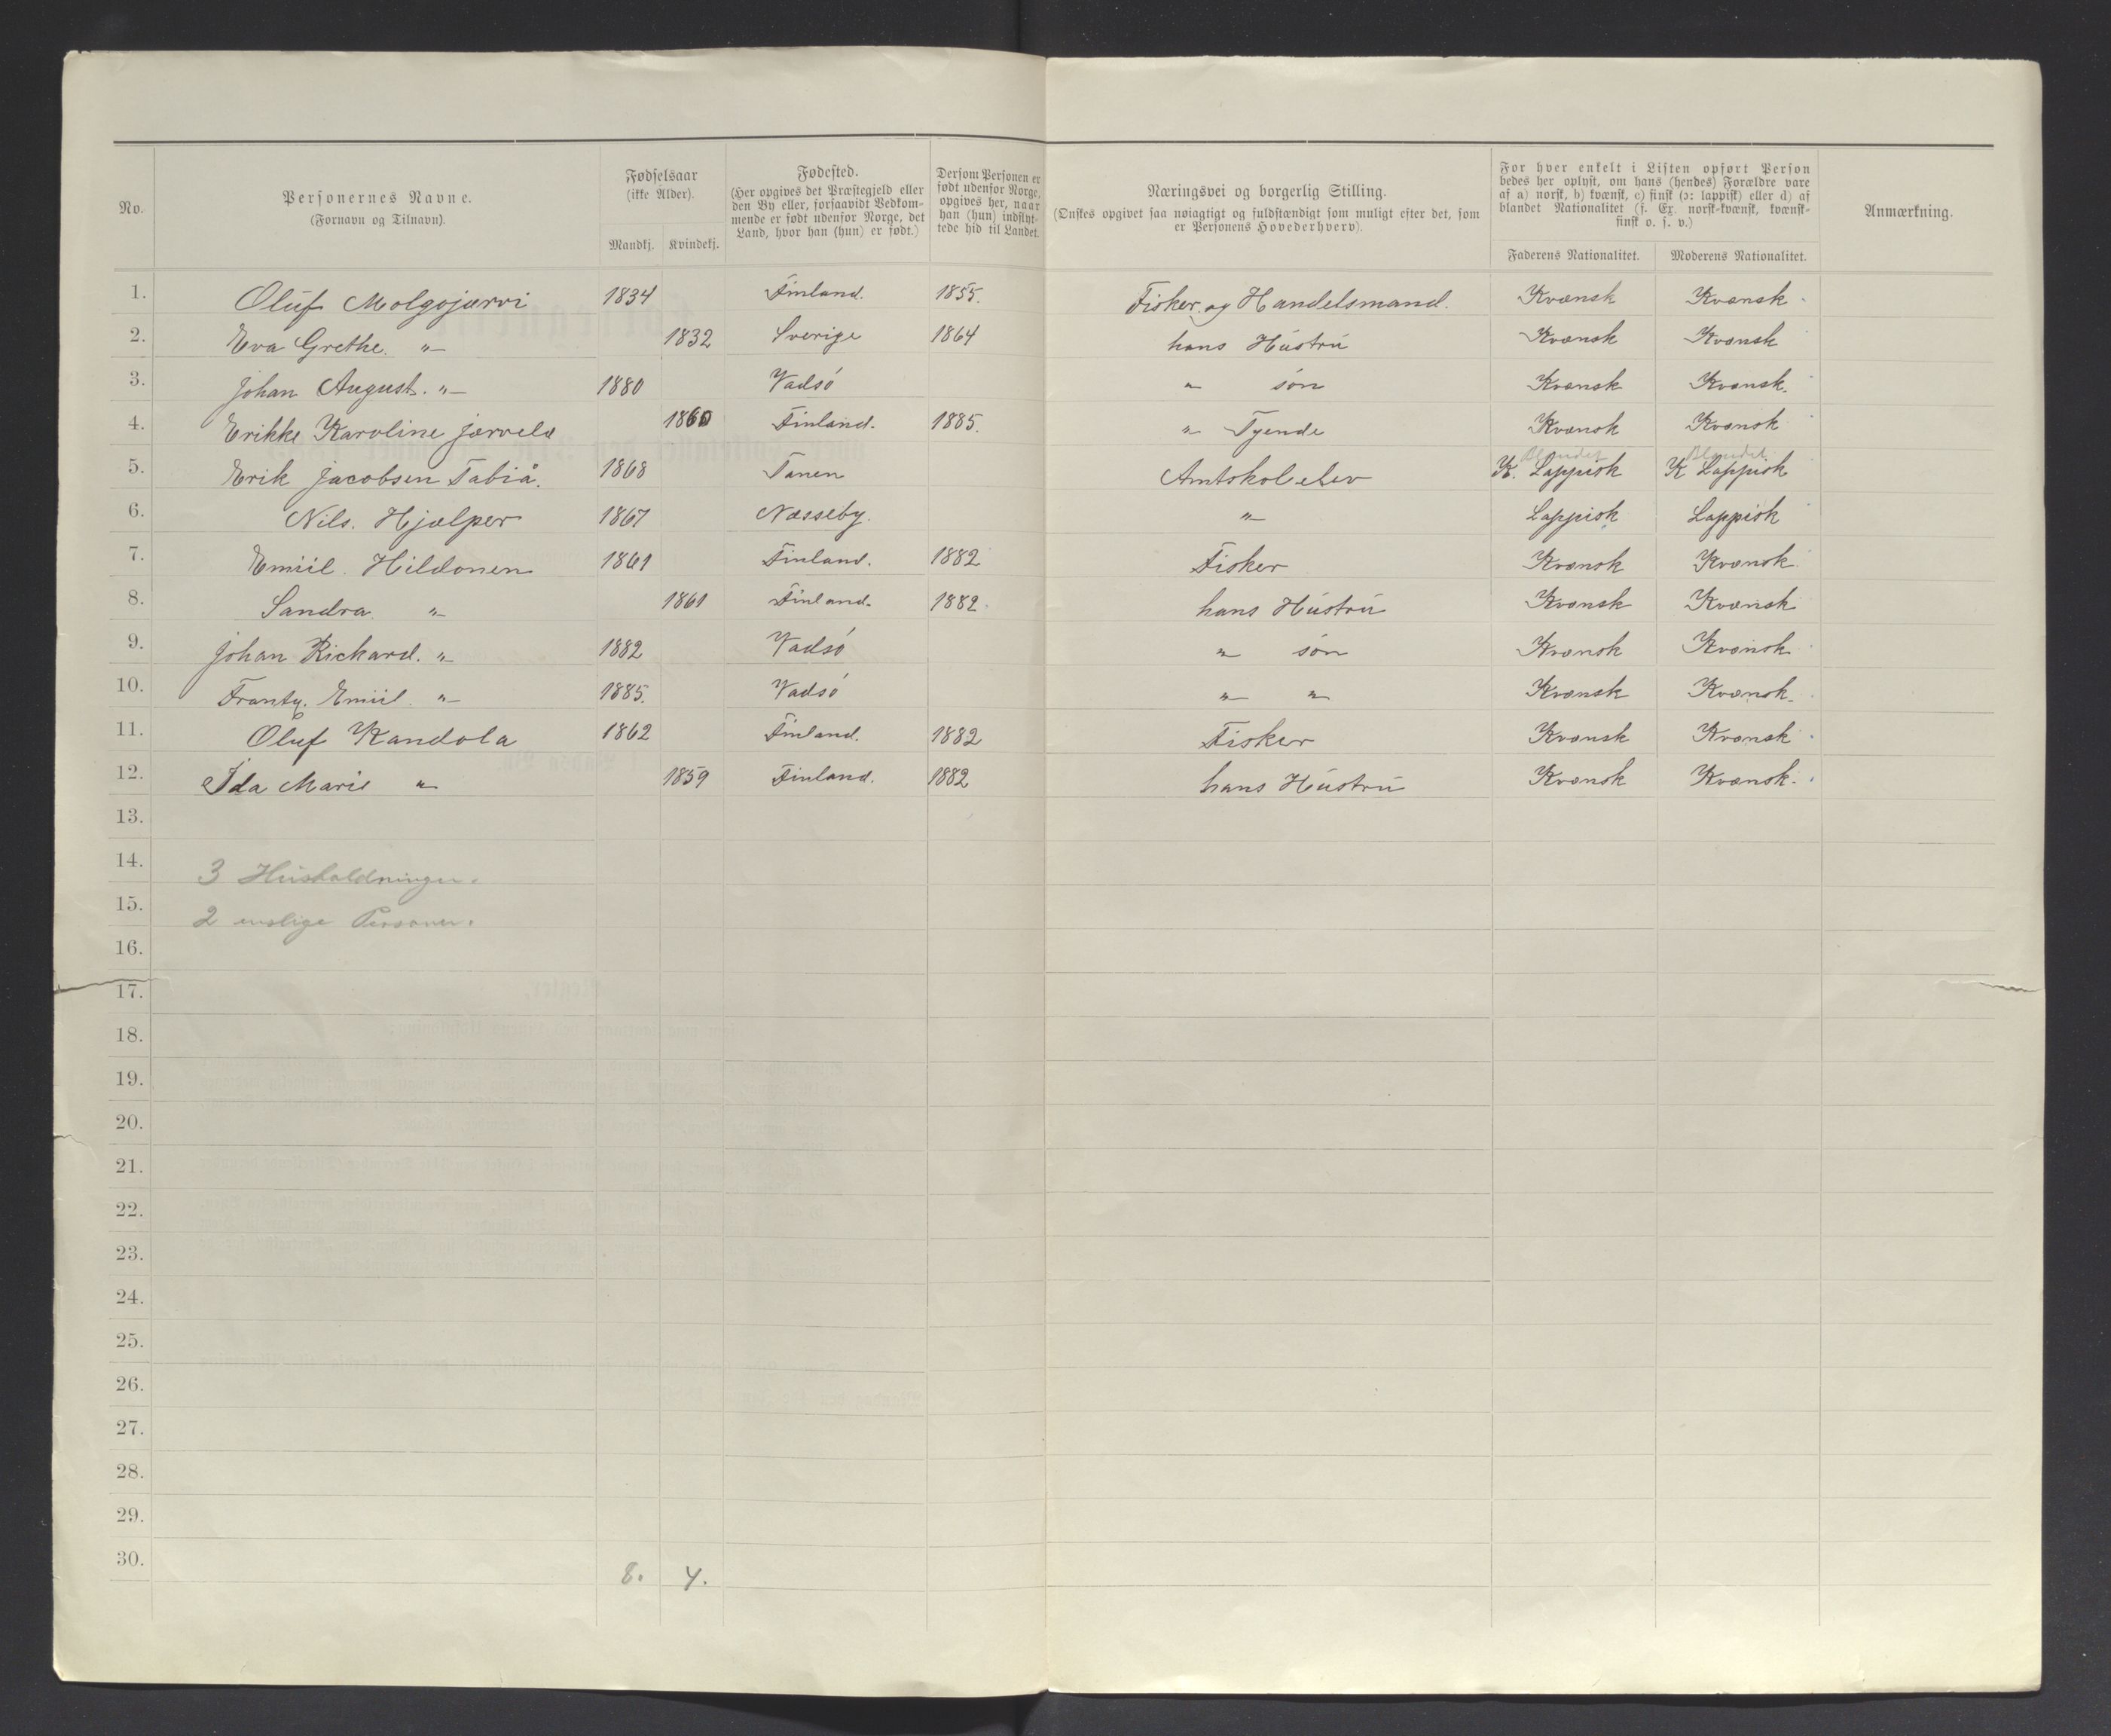 No.
Personernes Navne.
(Fornavn og Tilnavn).
Fødselsaar
(ikke Alder).
Mandkj. Kvindekj.
Fødested.
(Her opgives det Præstegjeld eller
den By eller, forsaavidt Vedkom-
mende er født udenfor Norge, det
Land, hvor han (hun) er født.)
Dersom Personen er
født udenfor Norge,
opgives her, naar
han (hun) indflyt-
tede hid til Landet.
Næringsvei og borgerlig Stilling.
(Ønskes opgivet saa nøiagtigt og fuldstændigt som muligt efter det, som
er Personens Hovederhverv).
For hver enkelt i Listen opført Person
bedes her oplyst, om hans (hendes) Forældre vare
af a) norsk, b) kvænsk, c) finsk (ɔ: lappisk) eller d) af
blandet Nationalitet (f. Ex. norsk-kvænsk, kvænsk-
finsk o. s. v.)
Faderens Nationalitet. Moderens Nationalitet.
Anmærkning.
1. Oluf Molgojærvi 1834 Finland. 1855. Fisker og Handelsmand. Kvænsk Kvænsk
2. Eva Grethe. " 1832 Sverige 1864 hans Hustru Kvænsk Kvænsk
3. Johan August. " 1880 Vadsö " sön Kvænsk Kvænsk.
4. Erikke Karoline Jærvelæ 1860 Finland. 1885. " Tyende Kvænsk Kvænsk
Blandet Blandet
5. Erik Jacobsen Tabiå. 1868 Tanen Amtskolelev K. Lappisk K Lappisk
6. Nils. Hjælper 1867 Næsseby. " Lappisk Lappisk
7. Emiil. Hildonen 1861 Finland. 1882 Fisker Kvænsk Kvænsk
8. Sandra " 1861 Finland. 1882. hans Hustru Kvænsk Kvænsk
9. Johan Rickard. " 1882 Vadsö " sön Kvænsk Kvænsk
10. Frantz. Emiil. " 1885. Vadsö " " Kvænsk Kvænsk.
11. Oluf Kandola 1862 Finland. 1882 Fisker Kvænsk Kvænsk
12. Ida Marie " 1859 Finland. 1882 hans Hustru Kvænsk Kvænsk.
13.
14. 3 Husholdninger.
15. 2 enslige Personer.
16.
17.
18.
19.
20.
21.
22.
23.
24.
25.
26.
27.
28.
29.
30.
8. 4.